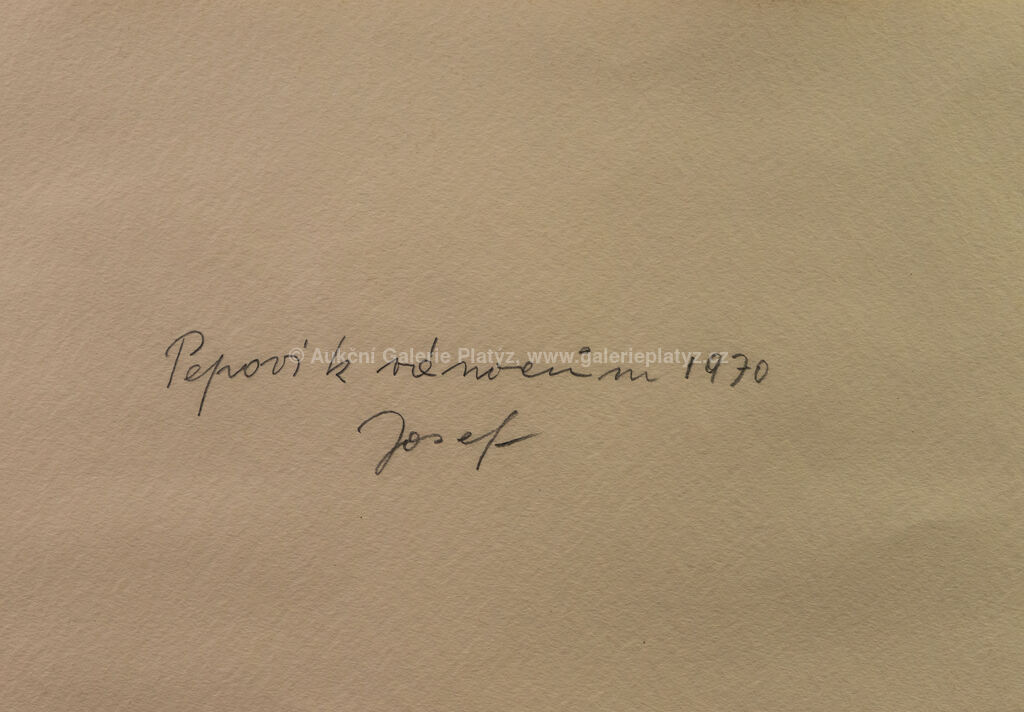 Pepovi k vánocům 1970
© Aukční Galerie Platýz, www.galerieplatyz.cz
Josef